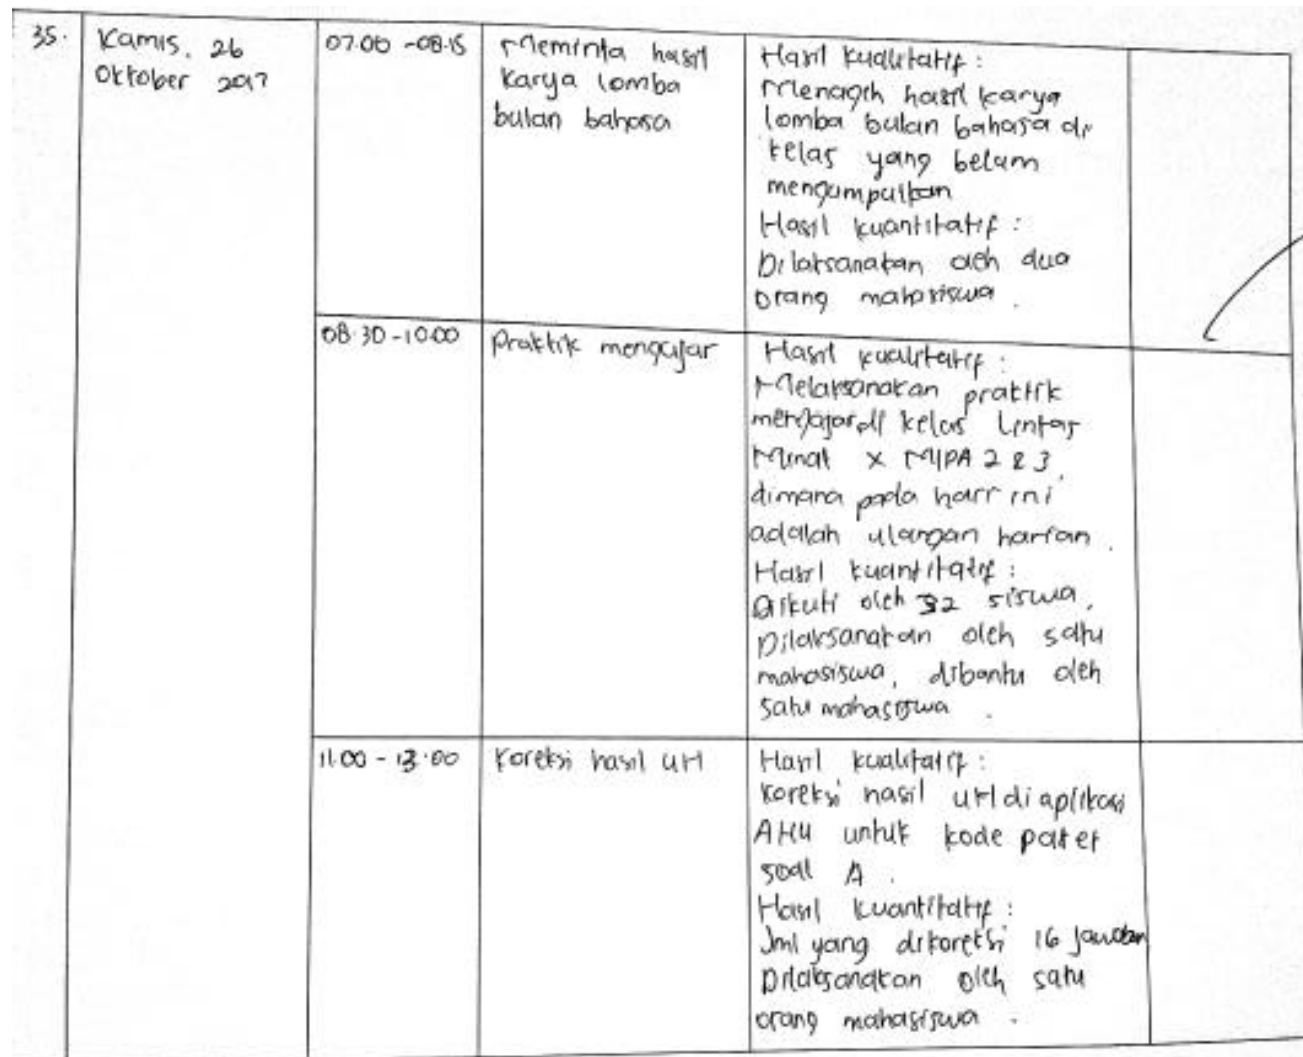 35.
Kamis, 26
Oktober 2017
07.00 - 08.15
Meminta hasil
karya lomba
bulan bahasa
Hasil kualitatif :
Menagih hasil karya
lomba bulan bahasa di
kelas yang belum
mengumpulkan
Hasil kuantitatif :
Dilaksanakan oleh dua
orang mahasiswa .
08.30 - 10.00
Praktik mengajar
Hasil kualitatif :
Melaksanakan praktik
mengajar di kelas Lintas
Minat X MIPA 2 & 3,
dimana pada hari ini
adalah ulangan harian .
Hasil kuantitatif :
Diikuti oleh 32 siswa,
Dilaksanakan oleh satu
mahasiswa, dibantu oleh
satu mahasiswa .
11.00 - 13.00
Koreksi hasil UH
Hasil kualitatif :
Koreksi hasil UH di aplikasi
AHU untuk kode paket
soal A .
Hasil kuantitatif :
Jml yang dikoreksi 16 jawaban
Dilaksanakan oleh satu
orang mahasiswa .